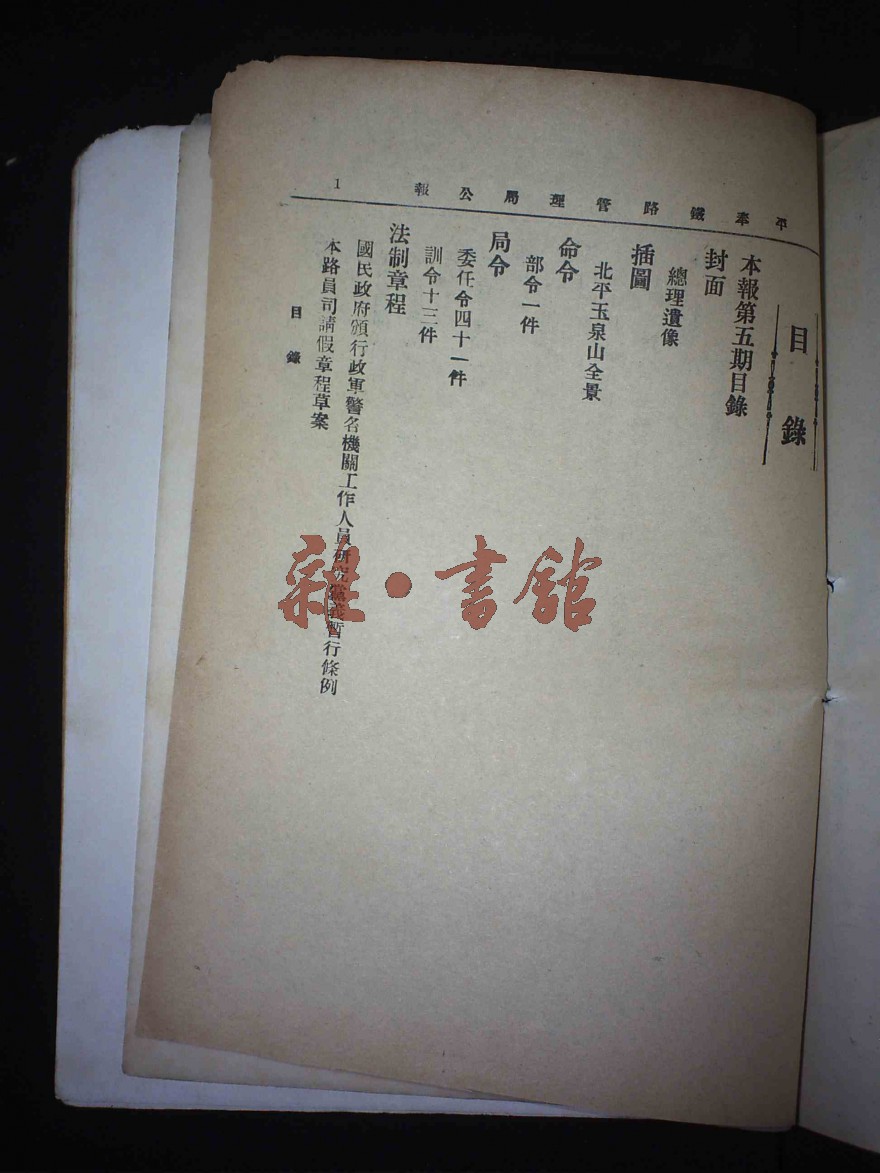 平奉鐵路管理局公報
1
目錄
本報第五期目錄
封面
總理遺像
插圖
北平玉泉山全景
命令
部令一件
局令
委任令四十一件
訓令十三件
法制章程
國民政府頒行政軍警各機關工作人員研究黨義暫行條例
本路員司請假章程草案
目錄
雜·書館